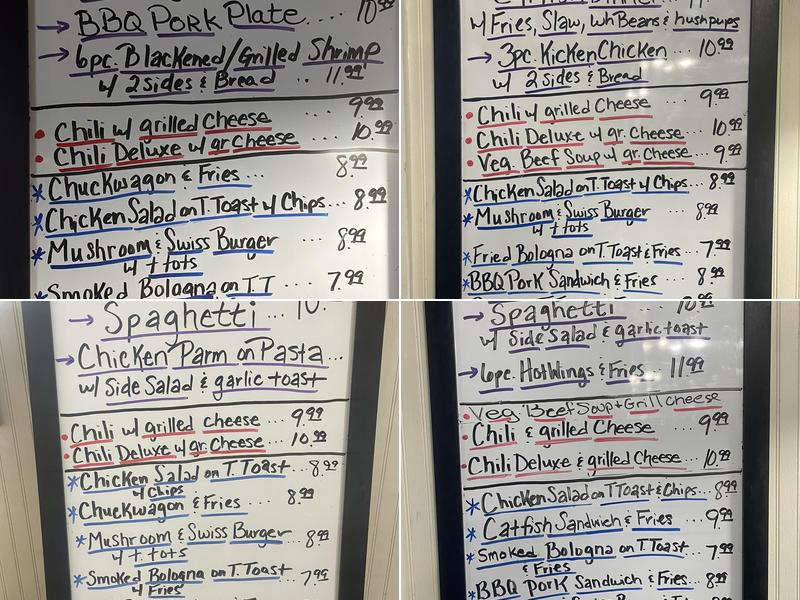 → BBQ Pork Plate.... 10.99
→ 6pc. Blackened/Grilled Shrimp
w/ 2 Sides & Bread .. 11.99
• Chili w/ grilled Cheese .... 9.99
• Chili Deluxe w/ gr. Cheese .... 10.99
* Chuckwagon & Fries ... 8.99
* Chicken Salad on T. Toast w/ Chips... 8.99
* Mushroom & Swiss Burger ... 8.99
w/ t tots
* Smoked Bologna on T.T ... 7.99
w/ Fries, Slaw, Wh Beans & hushpups
→ 3pc. Kicken Chicken ... 10.99
w/ 2 Sides & Bread
• Chili w/ grilled Cheese .... 9.99
• Chili Deluxe w/ gr. Cheese... 10.99
• Veg. Beef Soup w/ gr. Cheese... 9.99
* Chicken Salad on T. Toast w/ Chips.. 8.99
* Mushroom & Swiss Burger ... 8.99
w/ t tots
* Fried Bologna on T. Toast & Fries.. 7.99
* BBQ Pork Sandwich & Fries .. 8.99
→ Spaghetti ...
→ Chicken Parm on Pasta...
w/ Side Salad & garlic toast
• Chili w/ grilled cheese ... 9.99
• Chili Deluxe w/ gr. Cheese ... 10.99
* Chicken Salad on T. Toast... 8.99
w/ Chips
* Chuckwagon & Fries ... 8.99
* Mushroom & Swiss Burger ... 8.99
w/ t. tots
* Smoked Bologna on T. Toast ... 7.99
w/ Fries
→ Spaghetti ... 10.99
w/ Side Salad & garlic toast
→ 6pc. Hot Wings & Fries .. 11.99
• Veg. Beef Soup + Grill Cheese
• Chili & grilled Cheese ... 9.99
• Chili Deluxe & grilled Cheese... 10.99
* Chicken Salad on T Toast & Chips... 8.99
* Catfish Sandwich & Fries ... 9.99
* Smoked Bologna on T. Toast ... 7.99
& Fries
* BBQ Pork Sandwich & Fries... 8.99